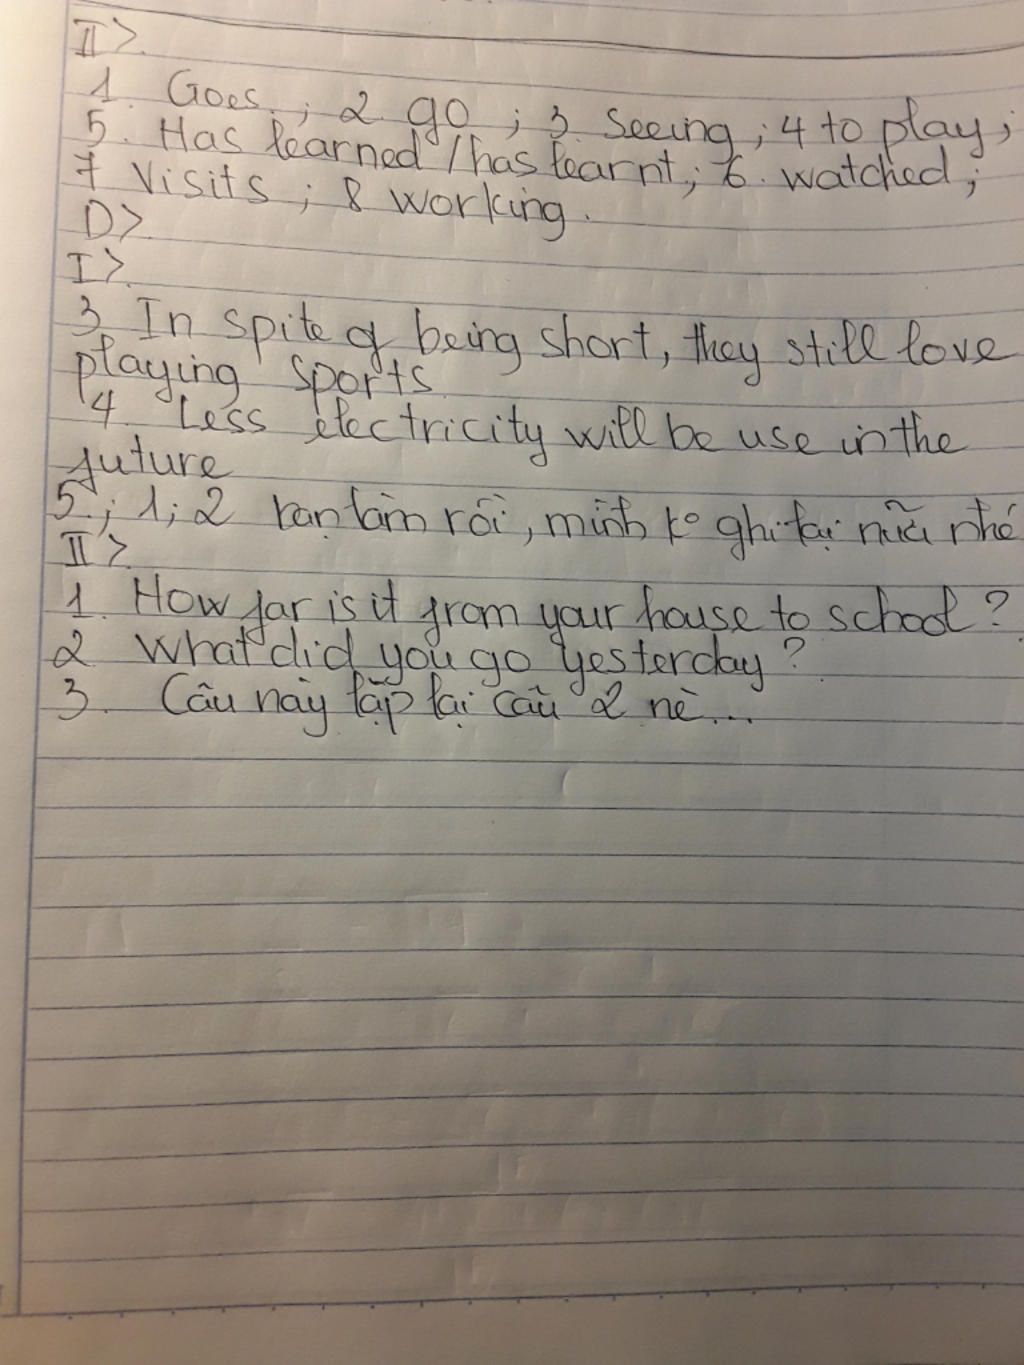 II>
1. Goes ; 2 go ; 3 seeing ; 4 to play ;
5. Has learned / has learnt ; 6. watched ;
7 Visits ; 8 working .
D>
I>
3 In spite of being short, they still love
playing sports
4 Less electricity will be use in the
future
5 ; 1 ; 2 bạn làm rồi, mình ko ghi lại nữa nhé
II>
1. How far is it from your house to school ?
2 What did you go yesterday ?
3. Câu này lặp lại câu 2 nè...